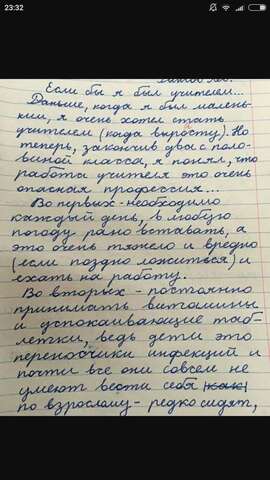 23:32
Если бы я был учителем...
Раньше, когда я был малень-
ким, я очень хотел стать
учителем (когда вырасту). Но
теперь, закончив два с поло-
виной класса, я понял, что
работа учителя это очень
опасная профессия...
Во первых - необходимо
каждый день, в любую
погоду рано вставать, а
это очень тяжело и вредно
(если поздно ложиться) и
ехать на работу.
Во вторых - постоянно
принимать витамины
и успокаивающие таб-
летки, ведь дети это
переносчики инфекций и
почти все они совсем не
умеют вести себя как
по взрослому - редко сидят,